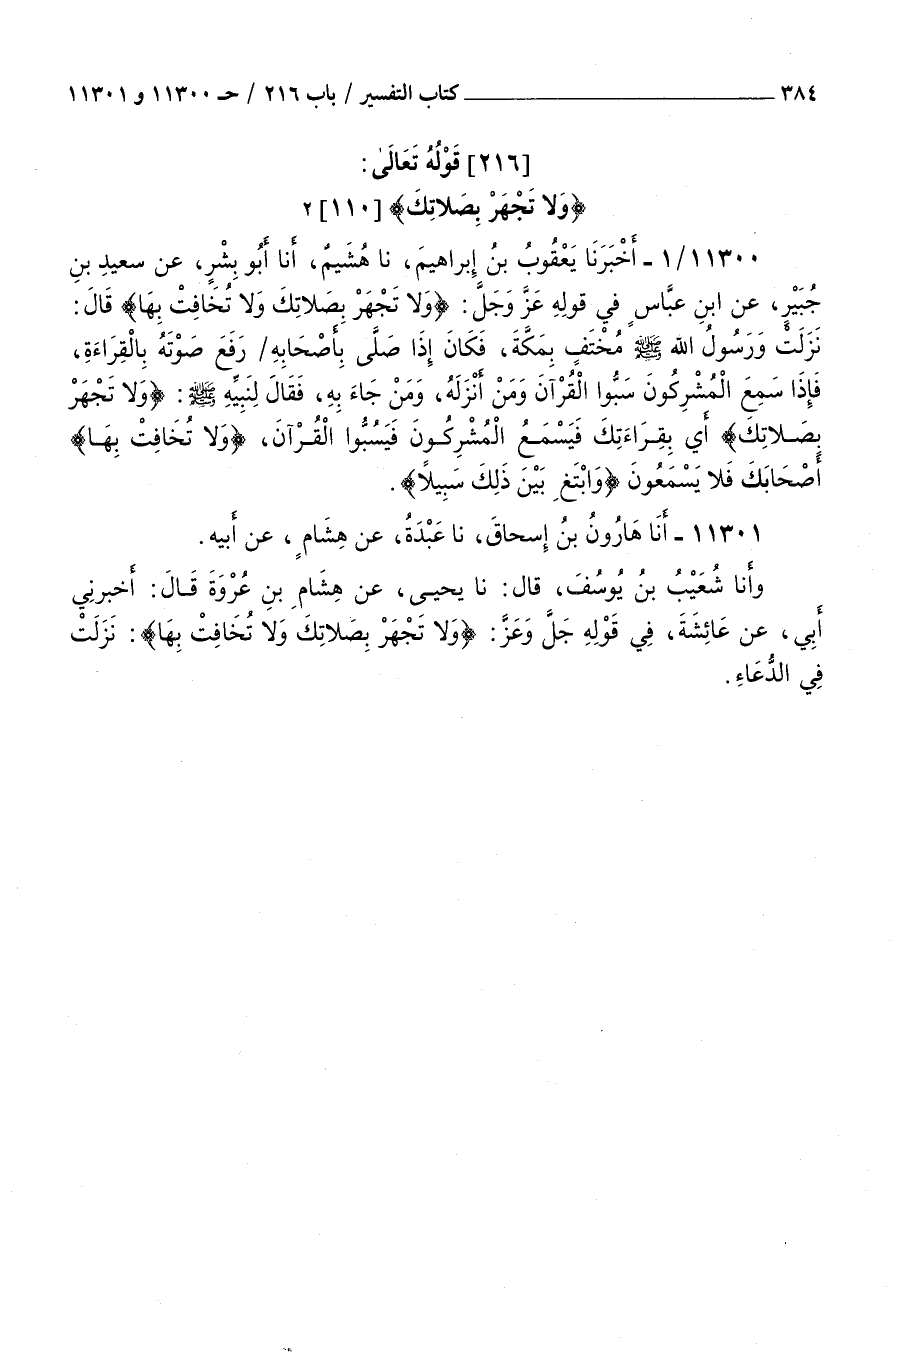 ٣٨٤ ــــــــــــــــــــ كتاب التفسير / باب ٢١٦ / حـ ١١٣٠٠ و ١١٣٠١
[٢١٦] قَوْلُهُ تَعَالَىٰ:
﴿وَلا تَجْهَرْ بِصَلاتِكَ﴾ [١١٠] ٢
١/١١٣٠٠ ـ أَخْبَرَنَا يَعْقُوبُ بنُ إِبراهيمَ، نا هُشَيمٌ، أَنا أَبُو بِشْرٍ، عن سعيدِ بنِ
جُبَيْرٍ، عن ابنِ عبَّاسٍ في قولِهِ عَزَّ وَجَلَّ: ﴿وَلا تَجْهَرْ بِصَلاتِكَ وَلا تُخَافِتْ بِهَا﴾ قَالَ:
نَزَلَتْ وَرَسُولُ الله ﷺ مُخْتَفٍ بِمَكَّةَ، فَكَانَ إِذَا صَلَّى بِأَصْحَابِهِ/ رَفَعَ صَوْتَهُ بِالْقِرَاءَةِ،
فَإِذَا سَمِعَ الْمُشْرِكُونَ سَبُّوا الْقُرْآنَ وَمَنْ أَنْزَلَهُ، وَمَنْ جَاءَ بِهِ، فَقَالَ لِنَبِيِّهِ ﷺ: ﴿وَلا تَجْهَرْ
بِصَلاتِكَ﴾ أَي بِقِرَاءَتِكَ فَيَسْمَعُ الْمُشْرِكُونَ فَيَسُبُّوا الْقُرْآنَ، ﴿وَلا تُخَافِتْ بِهَا﴾
أَصْحَابَكَ فَلا يَسْمَعُونَ ﴿وَابْتَغِ بَيْنَ ذَلِكَ سَبِيلاً﴾.
١١٣٠١ ـ أَنَا هَارُونُ بنُ إِسحاقَ، نا عَبْدَةُ، عن هِشَامٍ، عن أَبيه.
وأَنا شُعَيْبُ بنُ يُوسُفَ، قال: نا يحيى، عن هِشَامِ بنِ عُرْوَةَ قَالَ: أَخبرنِي
أَبِي، عن عَائِشَةَ، فِي قَوْلِهِ جَلَّ وَعَزَّ: ﴿وَلا تَجْهَرْ بِصَلاتِكَ وَلا تُخَافِتْ بِهَا﴾: نَزَلَتْ
فِي الدُّعَاءِ.